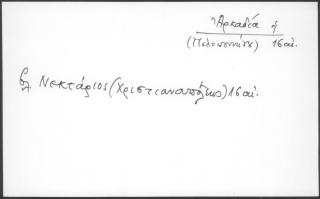 Ἀρκαδία ἡ
(Πελοποννήσου) 16 αἰ.
Νεκτάριος (Χριστιανουπόλεως) 16 αἰ.